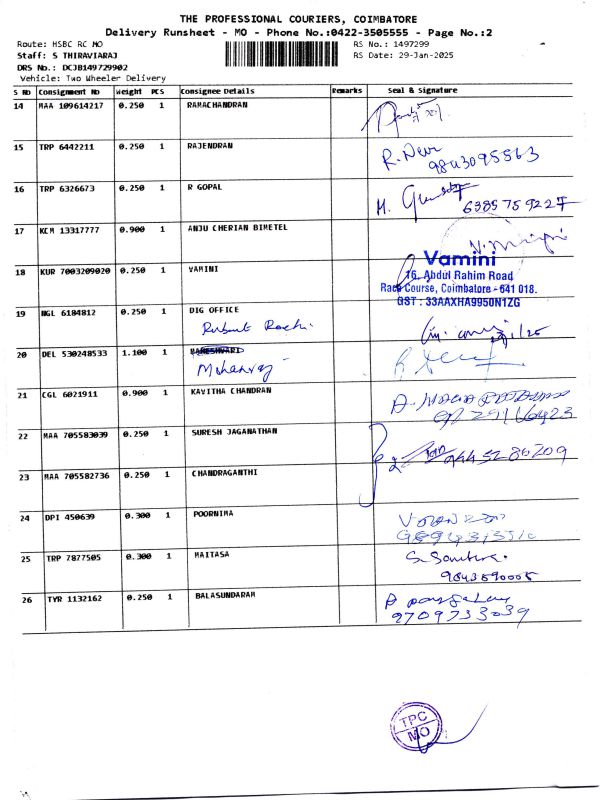 THE PROFESSIONAL COURIERS, COIMBATORE
Delivery Runsheet - MO - Phone No.:0422-3505555 - Page No.:2
Route: HSBC RC MO RS No.: 1497299
Staff: S THIRAVIARAJ RS Date: 29-Jan-2025
DRS No.: DCJB149729902
Vehicle: Two Wheeler Delivery
S No Consignment No Weight PCS Consignee Details Remarks Seal & Signature
14 MAA 109614217 0.250 1 RAMACHANDRAN
15 TRP 6442211 0.250 1 RAJENDRAN R. Devi
9843095563
16 TRP 6326673 0.250 1 R GOPAL
6385759227
17 KCM 13317777 0.900 1 ANJU CHERIAN BIMETEL
Vamini
18 KUR 7003209020 0.250 1 VAMINI 16, Abdul Rahim Road
Race Course, Coimbatore - 641 018.
GST : 33AAXHA9950N1ZG
19 NGL 6184812 0.250 1 DIG OFFICE
20 DEL 530248533 1.100 1
Mohanraj
21 CGL 6021911 0.900 1 KAVITHA CHANDRAN
22 MAA 705583039 0.250 1 SURESH JAGANATHAN
23 MAA 705582736 0.250 1 CHANDRAGANTHI
24 DPI 450639 0.300 1 POORNIMA
25 TRP 7877505 0.300 1 MAITASA
9843590005
26 TYR 1132162 0.250 1 BALASUNDARAM
9709733039
TPC
MO